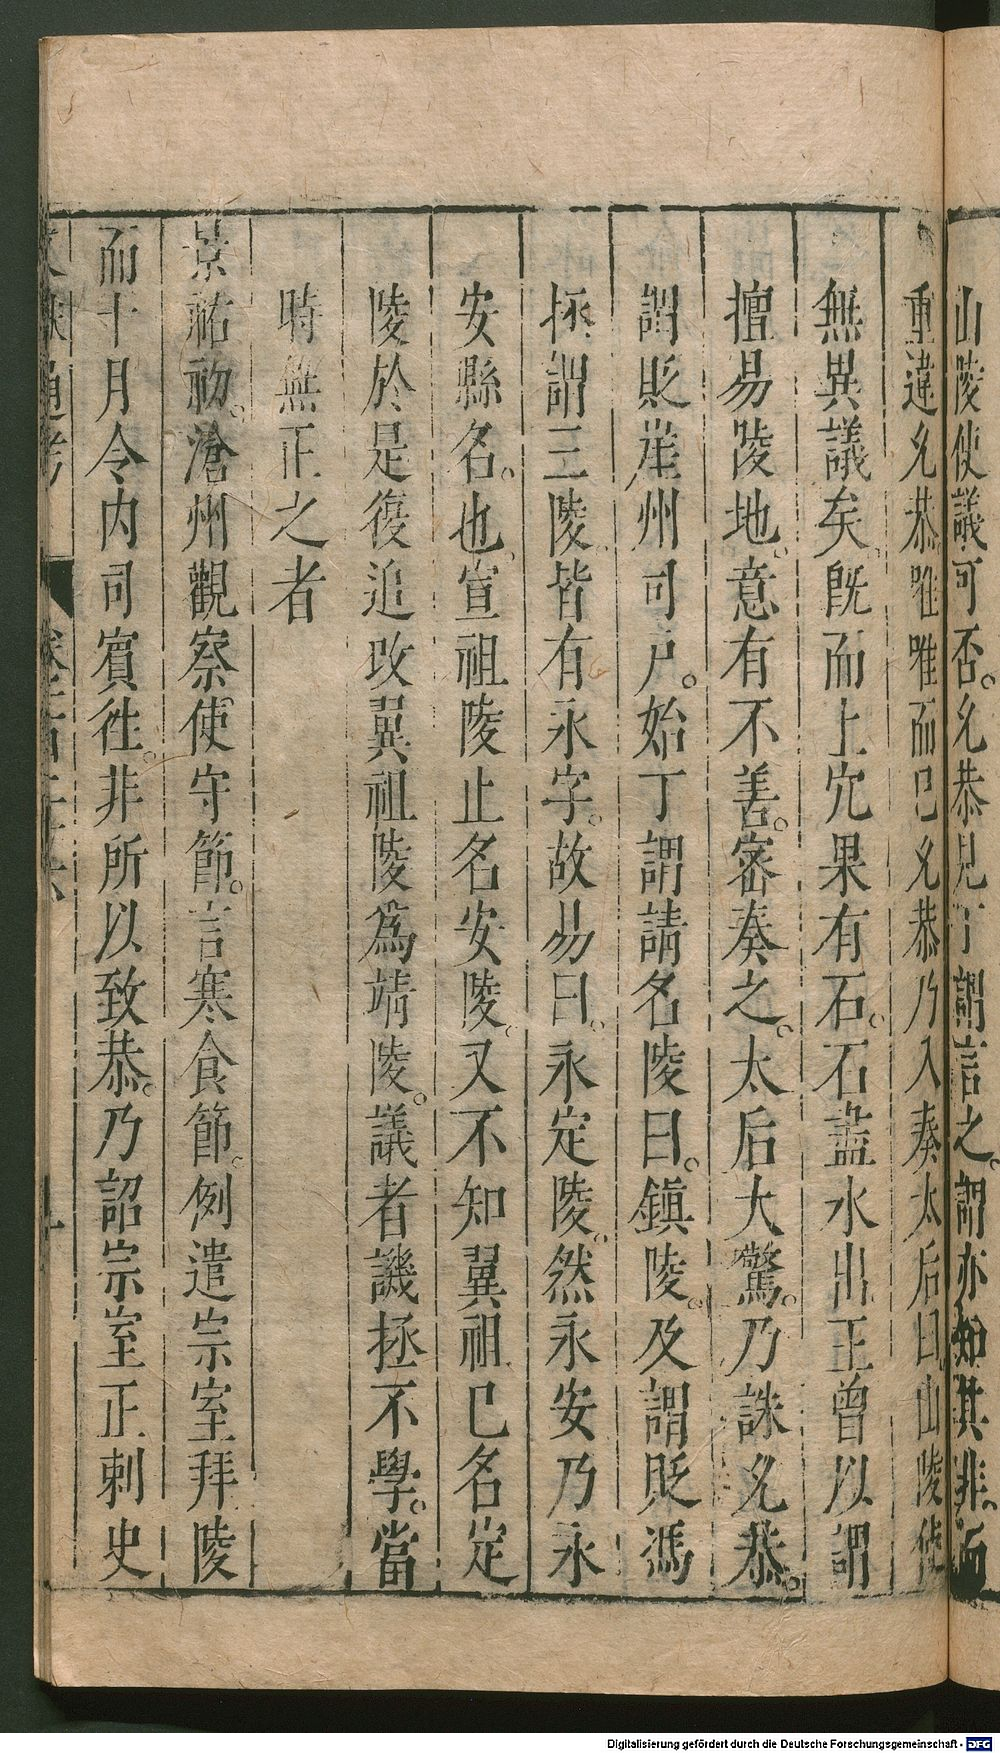 山陵使議可否。允恭見丁謂言之。謂亦知其非。而
重違允恭。唯唯而已允恭乃入奏太后曰。山陵使
無異議矣。旣而上穴果有石。石盡水出王曾以謂
擅易陵地。意有不善。密奏之。太后大驚。乃誅允恭。
謂貶崖州司戶。始丁謂請名陵曰。鎮陵。及謂貶馮
拯謂三陵。皆有永字。故易曰。永定陵。然永安乃永
安縣名。也。宣祖陵止名安陵。又不知翼祖已名定
陵於是復追改翼祖陵爲靖陵。議者譏拯不學。當
時無正之者
景祐初。滄州觀察使守節。言寒食節。例遣宗室拜陵
而十月令內司賓徃。非所以致恭。乃詔宗室正刺史
文獻通考
Digitalisierung gefördert durch die Deutsche Forschungsgemeinschaft - DFG